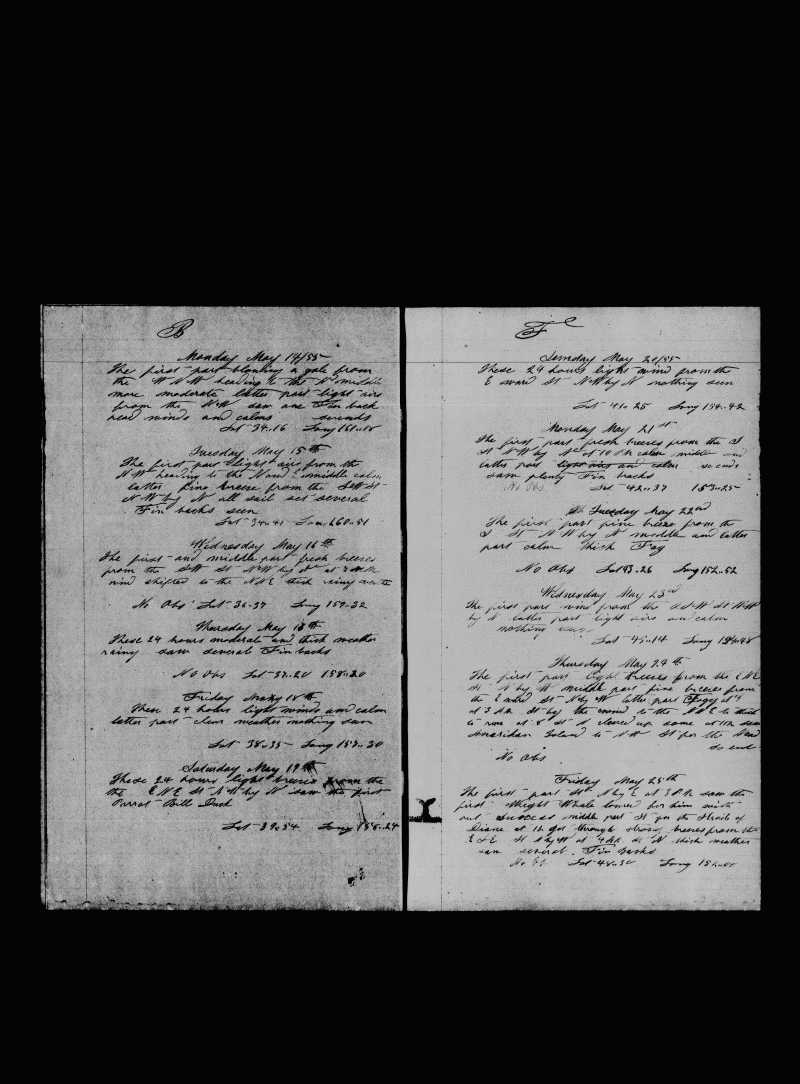 B
Monday May 14/55
The first part blowing a gale from
the W N W heading to the Nd middle
more moderate latter part light airs
from the N W saw one Fin back
head winds and calms
Lat 34..16 Long 161..18
Tuesday May 15th
The first part light airs from the
N W heading to the Nard & middle calm
latter fine breeze from the SW St
N W by N all sail set several
Fin backs seen
Lat 34..41 Long 160..51
Wednesday May 16th
The first and middle part fresh breeses
from the SW St NW by N at 7 AM
wind shifted to the NNE thick rainy
No Obs Lat 36-37 Long 159.32
Thursday May
These 24 hours moderate and thick weather
rainy saw several Fin backs
No Obs Lat 37..20 158..20
Friday May 18th
These 24 hours light winds and calm
latter part clear weather nothing seen
Lat 38..35 Long 157..30
Saturday May 19th
These 24 hours light breeses from the
the E N E St N W by N saw the first
Parrot Bill Duck
Lat 39..54 Long 156..24
F
Sunday May 20/55
These 24 hours light wind from the
E ward St NW by N nothing seen
Lat 41..25 Long 154..42
Monday May 21st
The first part fresh breeses from the S
St N W by N at 10 PM calm middle and
latter part light airs and calm so ends
saw plenty Fin backs
No Obs Lat 42..37 153..25
Tuesday May 22nd
The first part fine breeze from the
S St N W by N middle and latter
part calm thick Fog
No Obs Lat 43..26 Long 152..52
Wednesday May 23rd
The first part wind from the S S W St NW
by N latter part light airs and calm
nothing seen
Lat 45..14 Long
Thursday May 24th
The first part light breeses from the E N E
St N by W middle part fine breese from
the E ward St N by W latter part Foggy at
at 3 AM St by the wind to the N & E to thick
to run at 8 cleared up some at 11 AM saw
Island to N W St for the
so ends
No Obs
Friday May 25th
The first part St N by E at 3 PM saw the
first Wright Whale lowered for him with
out success middle part St for the Straits of
Diane at 12 got through strong breeses from the
E S E St N by W at 4 AM St N thick weather
saw several Fin backs
No Ob Lat 48..30 Long